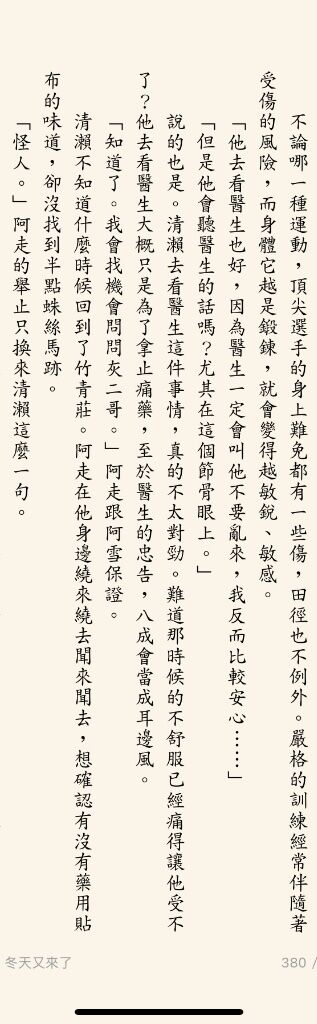 不論哪一種運動，頂尖選手的身上難免都有一些傷，田徑也不例外。嚴格的訓練經常伴隨著
受傷的風險，而身體它越是鍛鍊，就會變得越敏銳、敏感。
「他去看醫生也好，因為醫生一定會叫他不要亂來，我反而比較安心……」
「但是他會聽醫生的話嗎？尤其在這個節骨眼上。」
說的也是。清瀨去看醫生這件事情，真的不太對勁。難道那時候的不舒服已經痛得讓他受不
了？他去看醫生大概只是為了拿止痛藥，至於醫生的忠告，八成會當成耳邊風。
「知道了。我會找機會問問灰二哥。」阿走跟阿雪保證。
清瀨不知道什麼時候回到了竹青莊。阿走在他身邊繞來繞去聞來聞去，想確認有沒有藥用貼
布的味道，卻沒找到半點蛛絲馬跡。
「怪人。」阿走的舉止只換來清瀨這麼一句。
冬天又來了
380 /